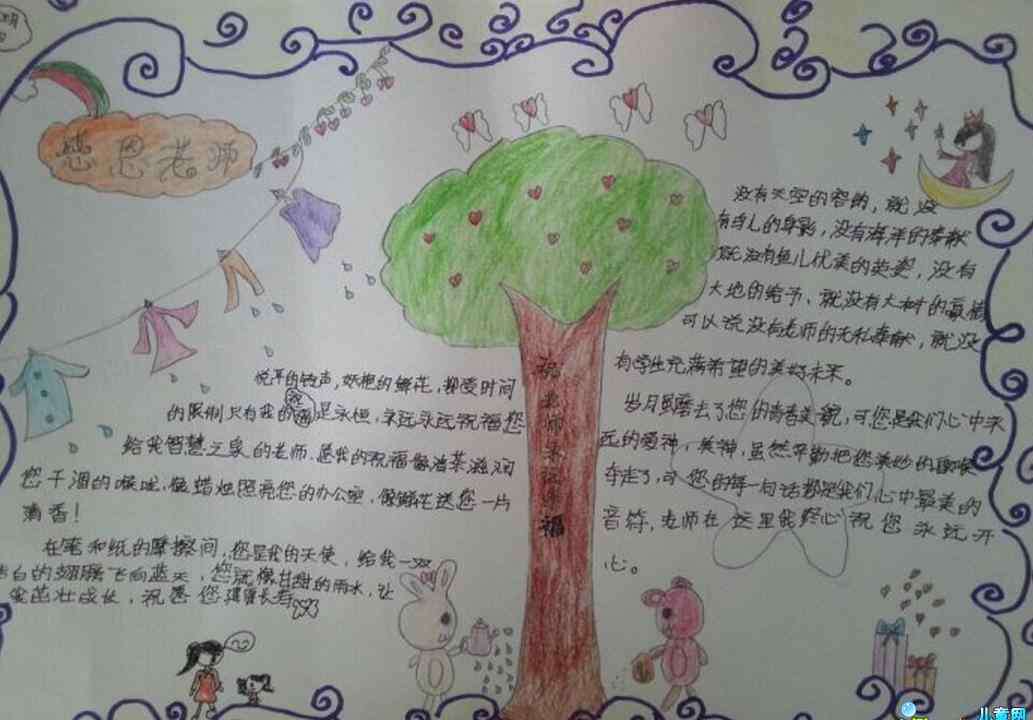 感恩老师
没有天空的容纳，就没
有鸟儿的身影，没有海洋的奉献
就没有鱼儿优美的英姿，没有
大地的给予、就没有大树的
可以说没有老师的无私奉献，就没
有学生充满希望的美好未来。
岁月虽磨去了您的青春美貌，可您是我们心中永
远的爱神，美神，虽然辛勤把您美妙的歌喉
夺走了，可您的每一句话都是我们心中最美的
音符，老师在这里我衷心祝您永远开
心。
悦耳的铃声，妖艳的鲜花，都受时间
的限制只有我的祝福是永恒，永远永远祝福您
给我智慧之泉的老师，愿我的祝福像清茶滋润
您干涸的喉咙，像蜡烛照亮您的办公室，像鲜花送您一片
清香！
在笔和纸的摩擦间，您是我的天使，给我一双
洁白的翅膀飞向蓝天，您就像甘甜的雨水，让
我茁壮成长，祝愿您健康长寿
祝
老
师
幸
福
儿童网